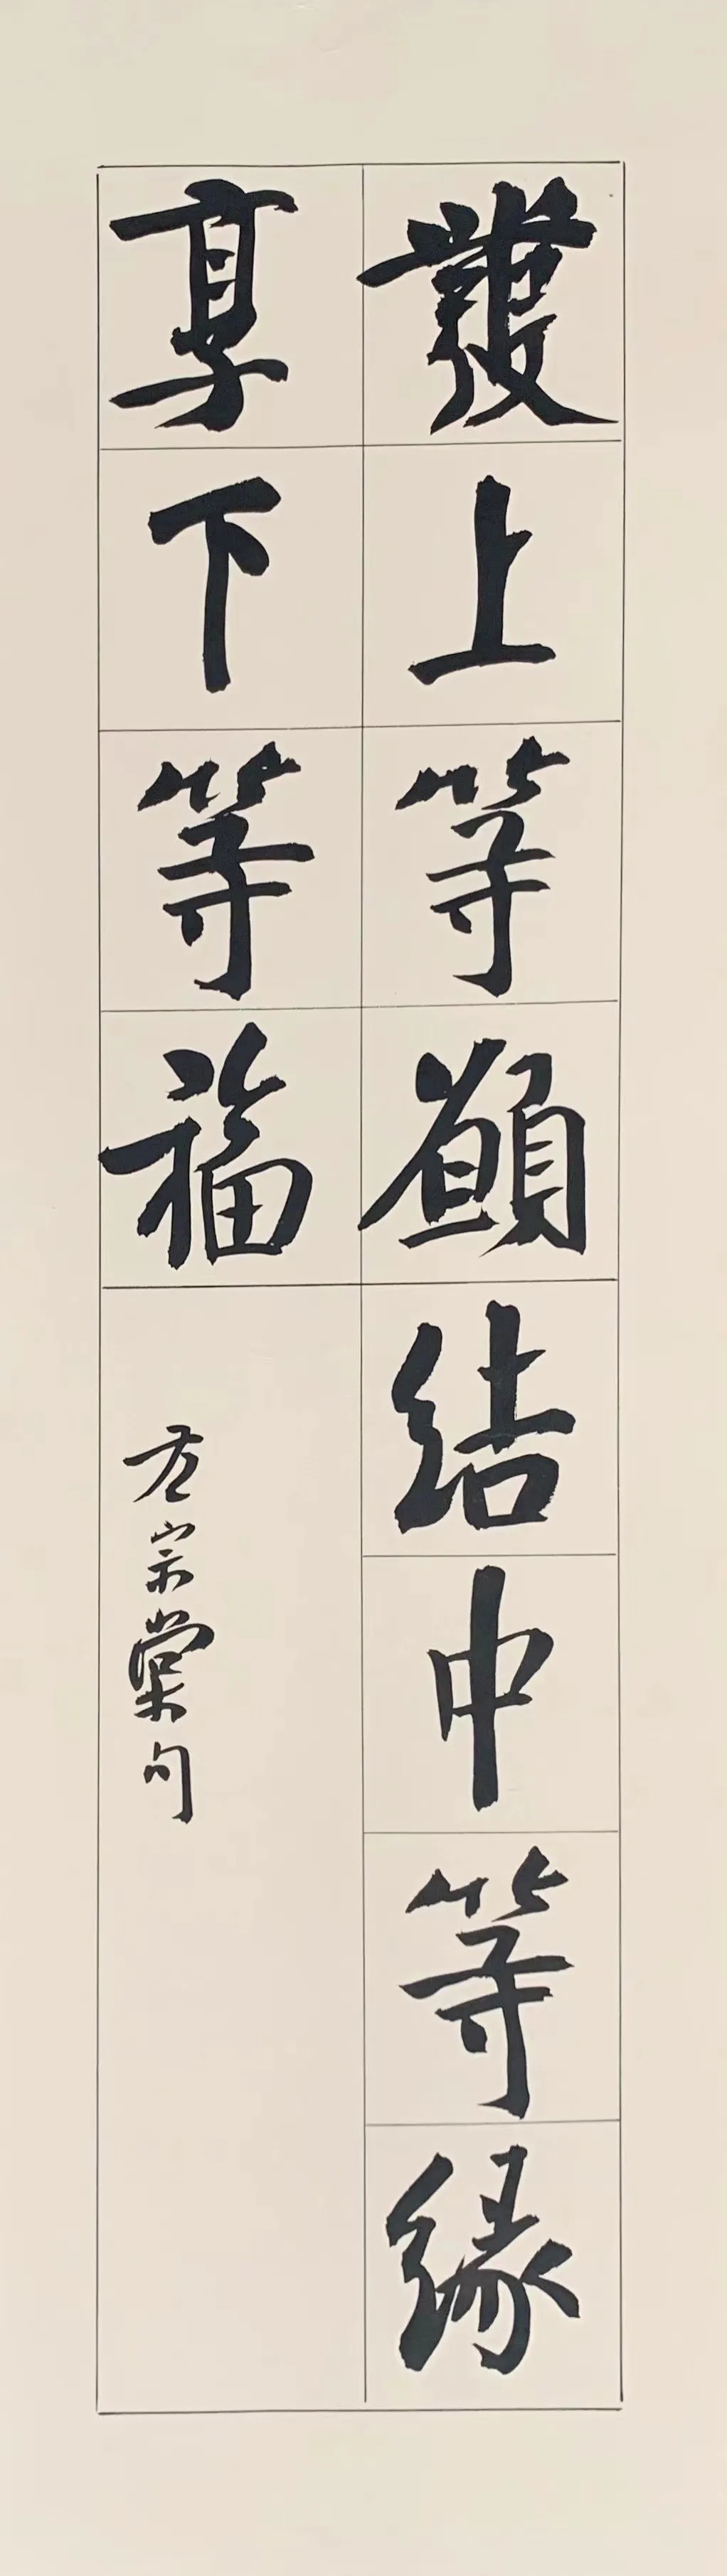 發上等願結中等緣
享下等福
左宗棠句